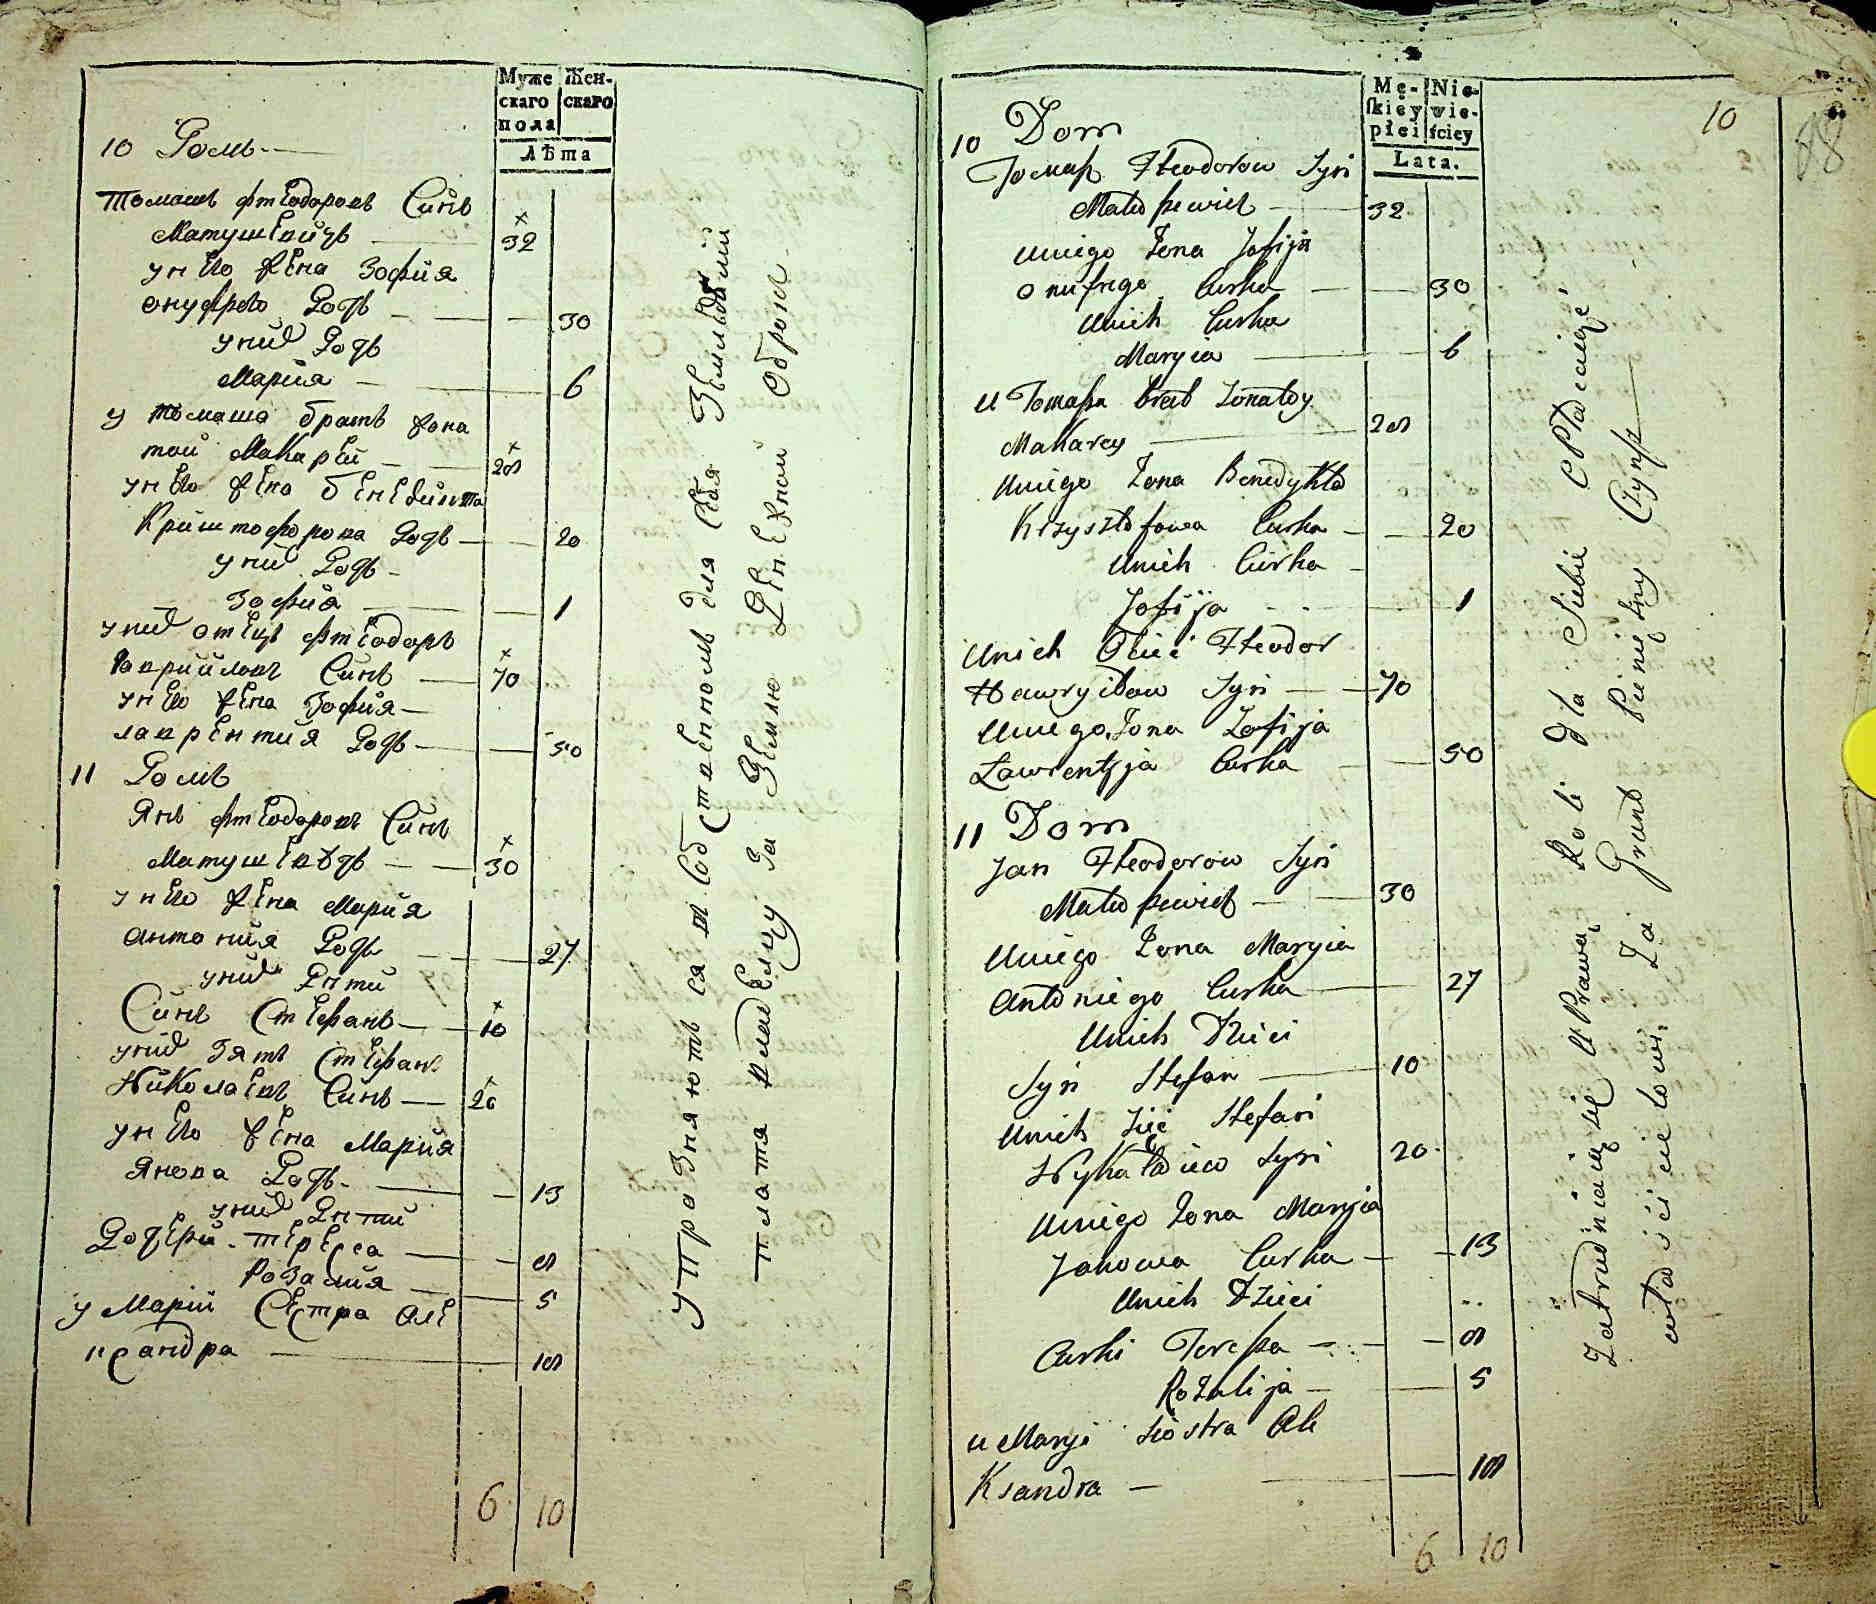 Муже
скаго
пола
Жен-
скаго
Лѣта
10 Домъ
Томашъ фтеодоровъ Синъ
Матушевичъ 32
у него жена Зофия
онуфрего Дочь 30
у них Дочь
Мария 6
у томаша братъ жона
той Макарей 28
у него жена бенедикта
Криштофорова Дочь 20
у них Дочь
Зофия 1
у них отецъ фтеодоръ
Гаврийловъ Синъ 70
у него жена Зофия
лаврентия Дочь 50
11 Домъ
Янъ фтеодоровъ Синъ
Матушевѣчъ 30
у него жена Мария
антония Дочь 27
у них Дѣти
Синъ Стефанъ 10
у них Зять Стефанъ
Николаевъ Синъ 20
у него жена Мария
Янова Дочь 13
у них Дѣти
Дочери тересса 8
Розалия 5
у Марии Сестра Але
ксандра 18
6 10
упразняются Собственномъ для Себя Землѣделии
плата владелцу За Землю Денежной Оброки
Mę-
skiey
płci
Nie-
wie-
ściey
Lata.
10
88
10 Dom
Tomasz Fteodorow Syn
Matuszewicz 32
u niego Żona Zofija
onufrego Curka 30
u nich Curka
Maryia 6
u Tomasza brat Żonatÿ
Makarey 28
u niego Żona Benedykta
Krzysztofowa Curka 20
u nich Curka
Zofija 1
u nich Ociec Fteodor
Hawryiłow Syn 70
u niego Żona Zofija
Lawrentyja Curka 50
11 Dom
Jan Fteodorow Syn
Matuszewicz 30
u niego Żona Maryia
Antoniego Curka 27
u nich Dzieci
Syn Stefan 10
u nich Zięć Stefan
Nykołaiew Syn 20
u niego Żona Maryia
Janowa Curka 13
u nich Dzieci
Curki Teressa 8
Rozalija 5
u Maryi Siostra Ale
Ksandra 18
6 10
Zatrudniaią się uprawą Roli dla Siebie opłacaiąc
właścicielowi Za Grunt Pieniężny Czynsz